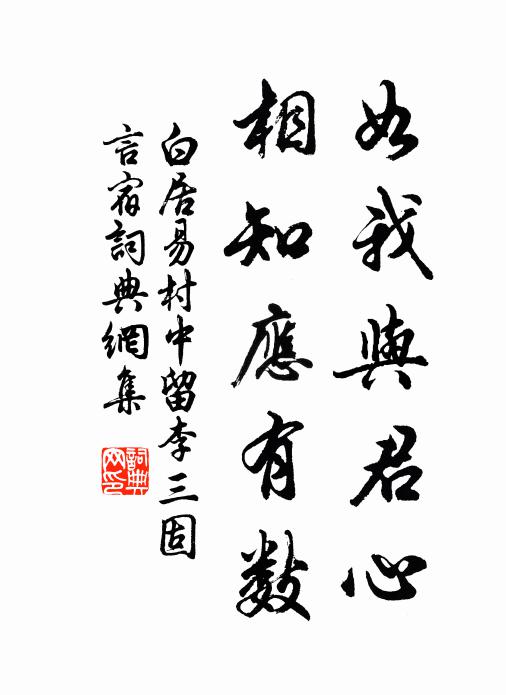 如我與君心
相知應有數
白居易村中留李三固
言宿詞典網集
詞典
网印